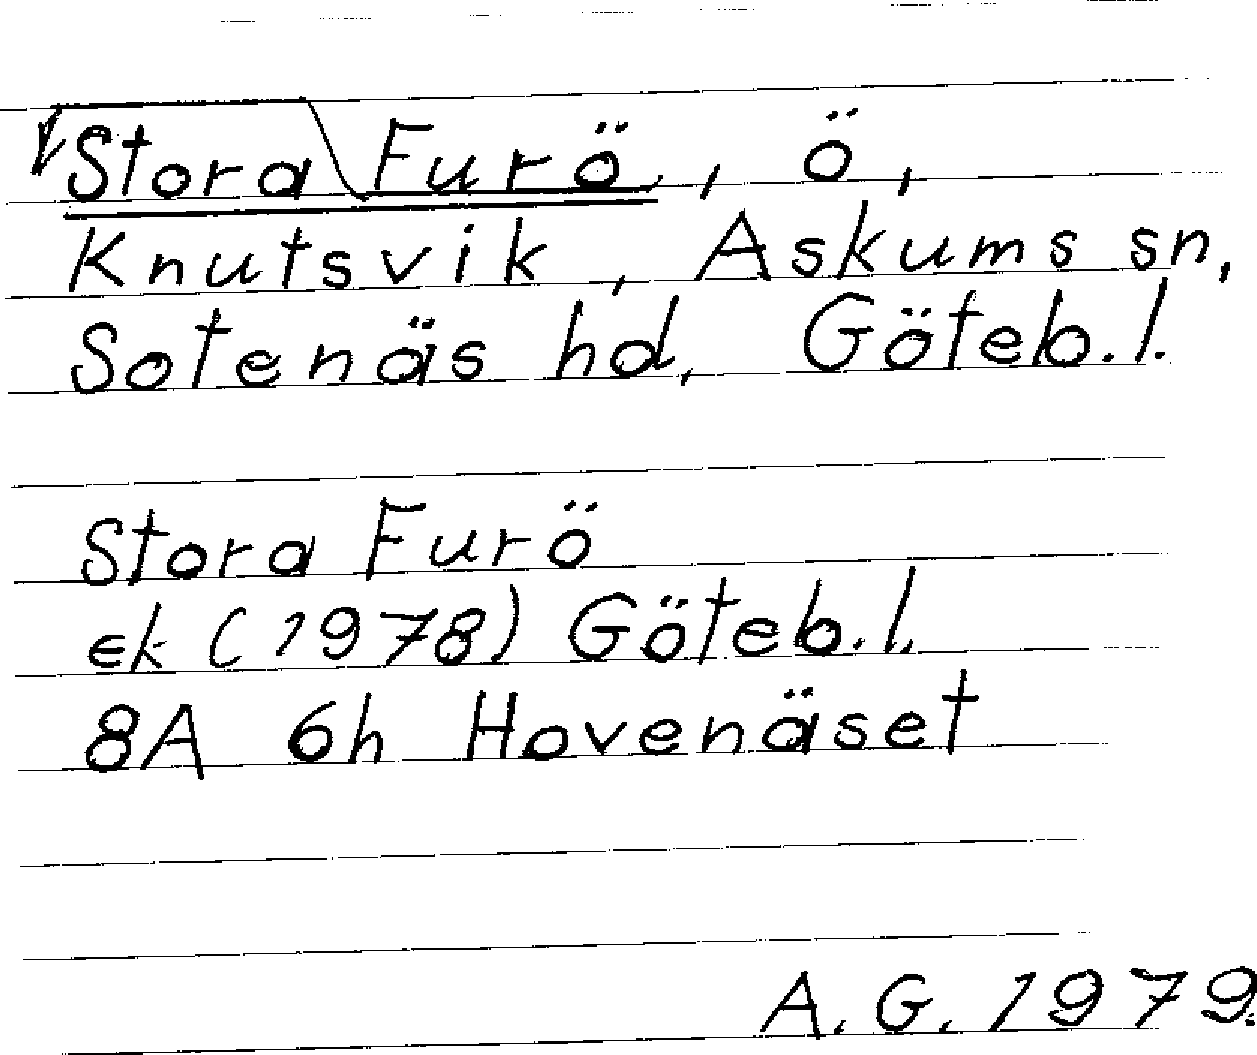 Stora Furö, ö,
Knutsvik, Askums sn,
Sotenäs hd, Göteb.l.
Stora Furö
ek (1978) Göteb.l.
8A 6h Hovenäset
A.G. 1979.